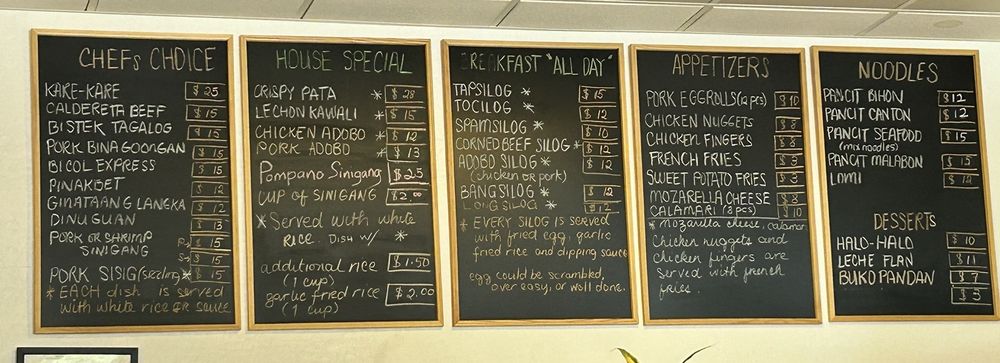 CHEFS CHOICE
KARE-KARE $25
CALDERETA BEEF $15
BISTEK TAGALOG $15
PORK BINAGOONGAN $15
BICOL EXPRESS $15
PINAKBET $12
GINATAANG LANGKA $12
DINUGUAN $13
PORK OR SHRIMP $15
SINIGANG $15
PORK SISIG (sizzling) * $15
* EACH dish is served
with white rice OR sauce
HOUSE SPECIAL
CRISPY PATA * $28
LECHON KAWALI * $15
CHICKEN ADOBO * $12
PORK ADOBO * $13
Pompano Sinigang $25
CUP OF SINIGANG $2.00
* Served with white
RICE. DISH W/ *
additional rice $1.50
(1 cup)
garlic fried rice $2.00
(1 cup)
BREAKFAST "ALL DAY"
TAPSILOG * $15
TOCILOG * $12
SPAMSILOG * $10
CORNED BEEF SILOG * $12
ADOBO SILOG * $12
(chicken or pork)
BANGSILOG * $12
LONGSILOG * $12
* EVERY SILOG IS SERVED
with fried egg, garlic
fried rice and dipping sauce
egg could be scrambled,
over easy, or well done.
APPETIZERS
PORK EGGROLLS (12 pcs) $10
CHICKEN NUGGETS $8
CHICKEN FINGERS $8
FRENCH FRIES $3
SWEET POTATO FRIES $3
MOZARELLA CHEESE $8
CALAMARI (8 pcs) $10
* Mozarella cheese, calamari
Chicken nuggets and
chicken fingers are
served with french
fries.
NOODLES
PANCIT BIHON $12
PANCIT CANTON $12
PANCIT SEAFOOD $15
(mix noodles)
PANCIT MALABON $15
LOMI $12
DESSERTS
HALO-HALO $10
LECHE FLAN $11
BUKO PANDAN $7
$5